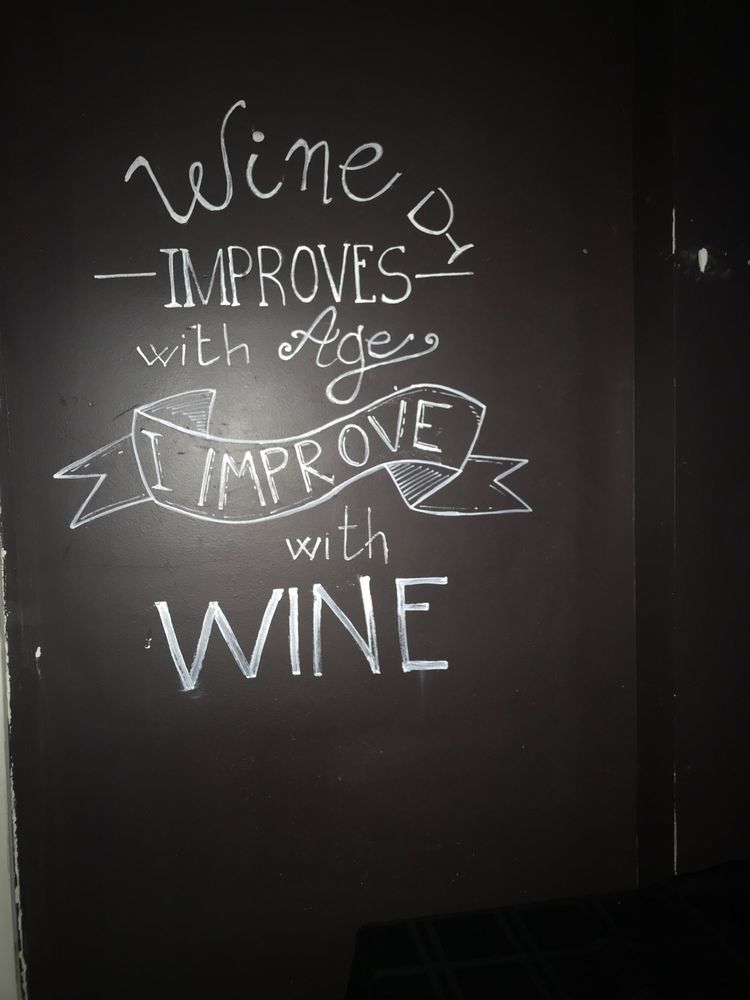 Wine DY
IMPROVES
with Age
I IMPROVE
with
WINE